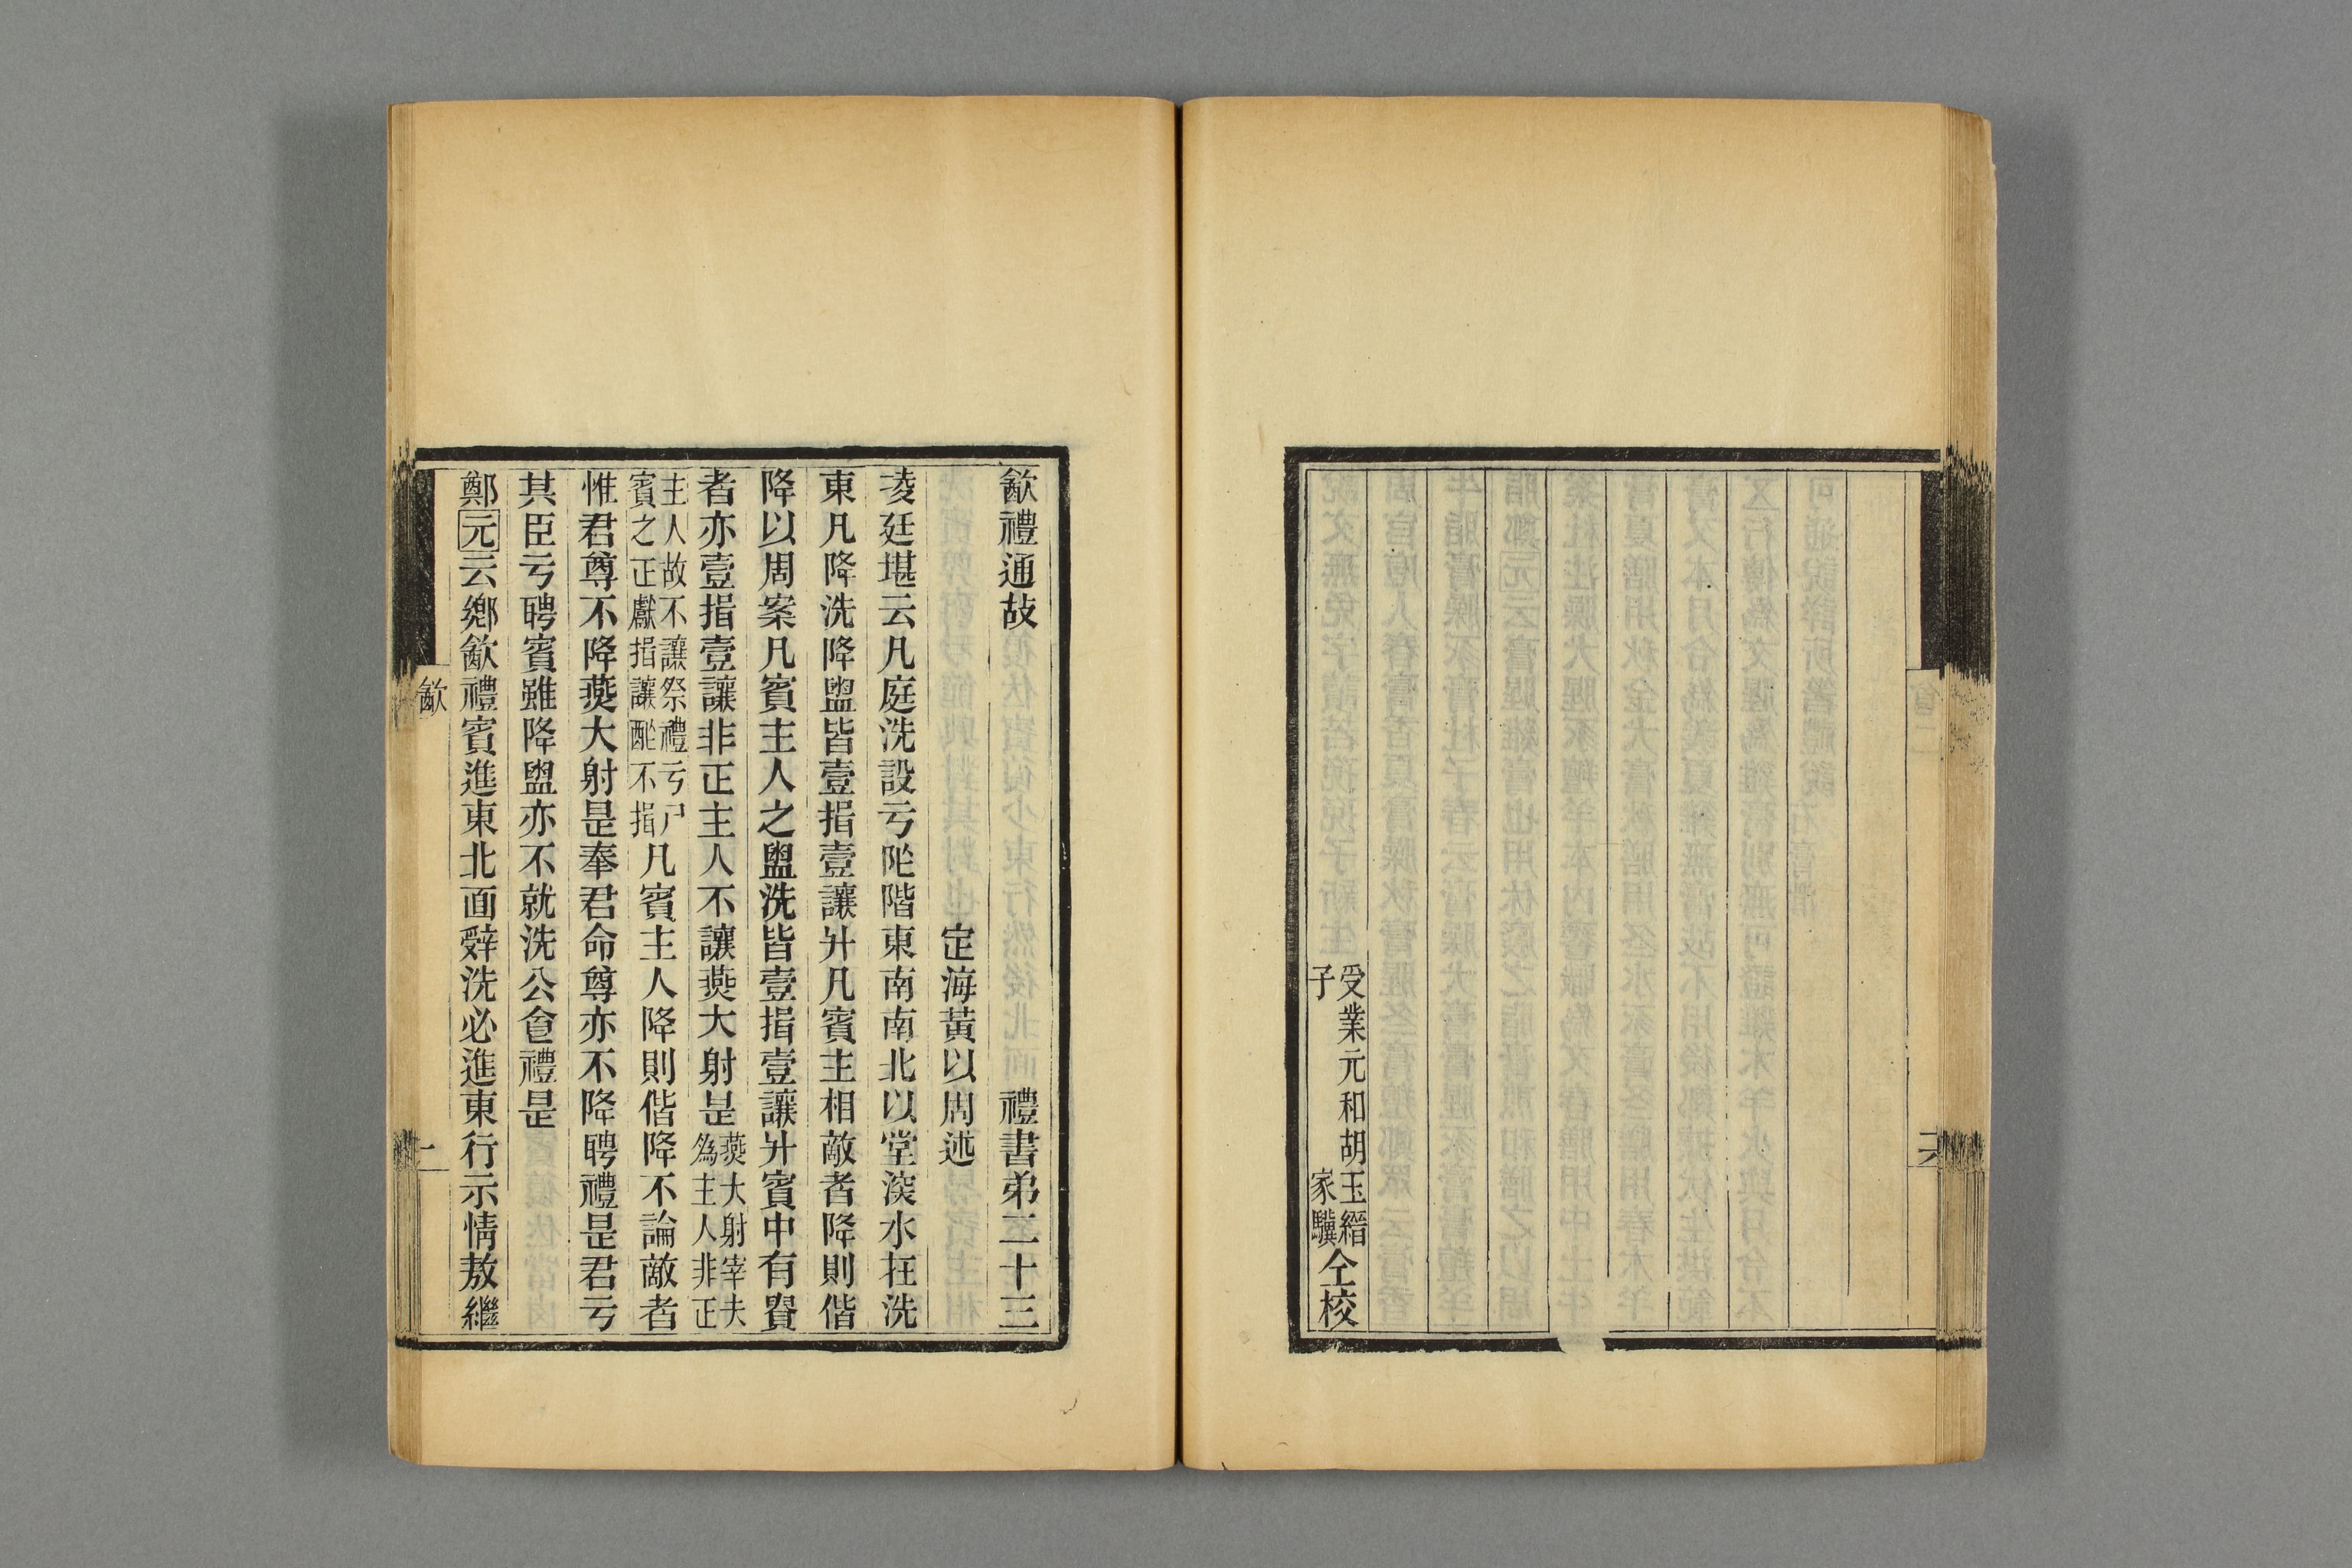 受業元和胡玉縉
子家驥
仝校
六
歙禮通故 禮書弟二十三
定海黃以周述
淩廷堪云凡庭洗設亏阼階東南南北以堂深水在洗
東凡降洗降盥皆壹揖壹讓升凡賓主相敵者降則偕
降以周案凡賓主人之盥洗皆壹揖壹讓升賓中有賢
者亦壹揖壹讓非正主人不讓燕大射是燕大射宰夫為主人非正
主人故不讓祭禮亏尸賓之正獻揖讓酢不揖凡賓主人降則偕降不論敵者
惟君尊不降燕大射是奉君命尊亦不降聘禮是君亏
其臣亏聘賓雖降盥亦不就洗公食禮是
鄭元云鄉歙禮賓進東北面辭洗必進東行示情敖繼
歙
一